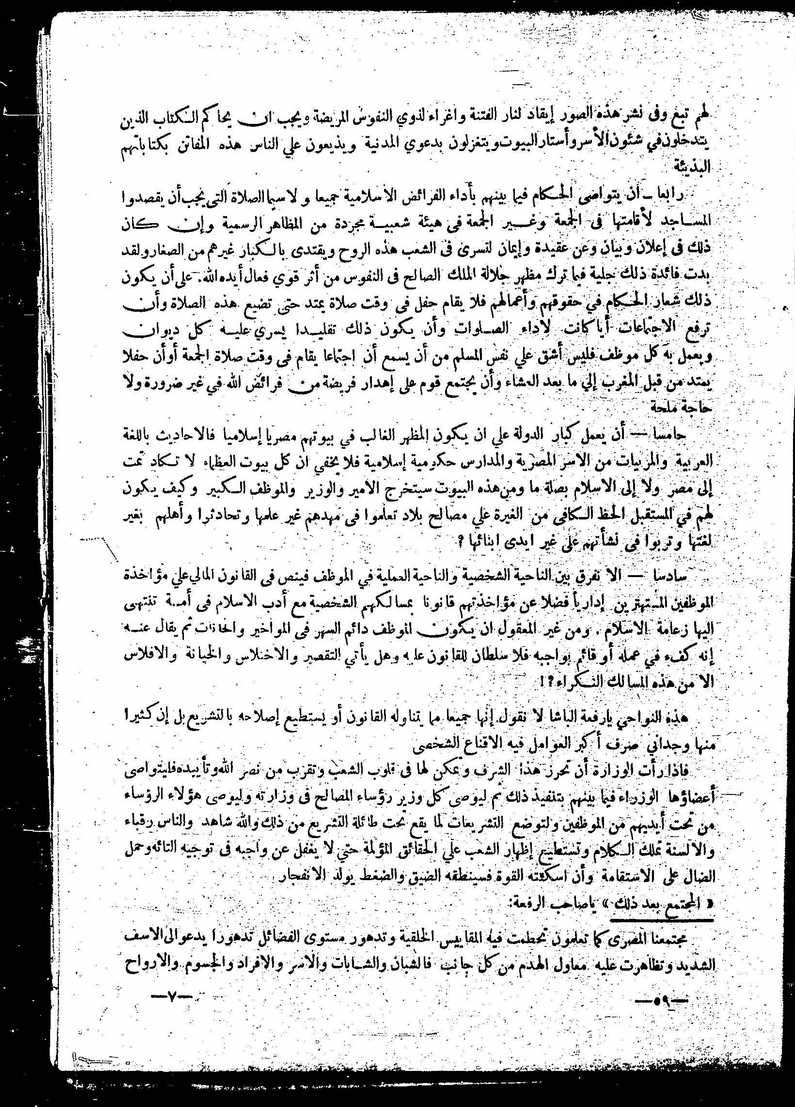 لهم تبغ وفى نشر هذه الصور إيقاد لنار الفتنة واغراء لذوي النفوس المريضة ويجب ان يحاكم الكتاب الذين
يتدخلون في شئون الأسر وأستار البيوت ويتغزلون بدعوي المدنية ويذيعون علي الناس هذه المفاتن بكتاباتهم
البذيئة
رابعا – أن يتواضى الحكام فيما بينهم بأداء الفرائض الأسلامية جميعا ولاسيما الصلاة التى يجب أن يقصدوا
المساجد لأقامتها فى الجمعة وغير الجمعة فى هيئة شعبية مجردة من المظاهر الرسمية وإن كان
ذلك فى إعلان وبيان وعن عقيدة وإيمان لتسرى فى الشعب هذه الروح ويقتدى بالكبار غيرهم من الصغار ولقد
بدت فائدة ذلك جلية فيما ترك مظهر جلالة الملك الصالح فى النفوس من أثر قوي فعال أيده الله. على أن يكون
ذلك شعار الحكام في حقوقهم وأعمالهم فلا يقام حفل فى وقت صلاة يمتد حتى تضيع هذه الصلاة وأن
ترفع الاجتماعات أيا كانت لاداء الصلوات وأن يكون ذلك تقليدا يسري عليه كل ديوان
ويعمل به كل موظف فليس أشق علي نفس المسلم من أن يسمع أن اجتماعا يقام فى وقت صلاة الجمعة أو أن حفلا
يمتد من قبل المغرب إلي ما بعد العشاء وأن يجتمع قوم على إهدار فريضة من فرائض الله في غير ضرورة ولا
حاجة ملحة
خامسا – أن يعمل كبار الدولة علي ان يكون المظهر الغالب في بيوتهم مصريا إسلاميا فالاحاديث باللغة
العربية والمربيات من الاسر المصرية والمدارس حكومية إسلامية فلا يخفي ان كل بيوت العظماء لا تكاد تمت
إلى مصر ولا إلى الاسلام بصلة ما ومن هذه البيوت سيتخرج الأمير والوزير والموظف الكبير وكيف يكون
لهم في المستقبل الحظ الكافى من الغيرة علي مصالح بلاد تعلموا فى مهدهم غير علمها وتحادثوا وأهلهم بغير
لغتها وتربوا فى نشأتهم على غير ايدى ابنائها ؟
سادسا – الا نفرق بين الناحية الشخصية والناحية العملية في الموظف فينص فى القانون المالي علي مؤاخذة
الموظفين المستهترين إداريا فضلا عن مؤاخذتهم قانونا بمسالكهم الشخصية مع أدب الاسلام فى أمة تنتهى
اليها زعامة الاسلام . ومن غير المعقول ان يكون الموظف دائم السهر فى المواخير والحانات ثم يقال عنه
إنه كفء في عمله أو قائم بواجبه فلا سلطان للقانون عليه وهل يأتي التقصير والاختلاس والخيانة والافلاس
الا من هذه المسالك النكراء ؟!
هذه النواحي يارفعة الباشا لا نقول إنها جميعا مما يتناوله القانون أو يستطيع إصلاحه بالتشريع بل إن كثيرا
منها وجداني صرف أكبر العوامل فيه الاقناع الشخصى
فاذا رأت الوزارة أن تحرز هذا الشرف وتمكن لها فى قلوب الشعب وتقرب من نصر الله وتأييده فليتواصى
أعضاؤها الوزراء فيما بينهم بتنفيذ ذلك ثم ليوصى كل وزير رؤساء المصالح فى وزارته وليوصى هؤلاء الرؤساء
من تحت أيديهم من الموظفين ولتوضع التشريعات لما يقع تحت طائلة التشريع من ذلك والله شاهد والناس رقباء
والالسنة تملك الكلام وتستطيع إظهار الشعب علي الحقائق المؤلمة حتي لا يغفل عن واجبه فى توجيه التائه وحمل
الضال على الاستقامة وأن اسكتته القوة فسينطقه الضيق والضغط يولد الانفجار
« المجتمع بعد ذلك » ياصاحب الرفعة:
مجتمعنا المصرى كما تعلمون تحطمت فيه المقاييس الخلقية وتدهور مستوى الفضائل تدهورا يدعو الى الاسف
الشديد وتظاهرت عليه معاول الهدم من كل جانب فالشبان والشابات والاسر والافراد والجسوم والارواح
—٥٩— —٧—